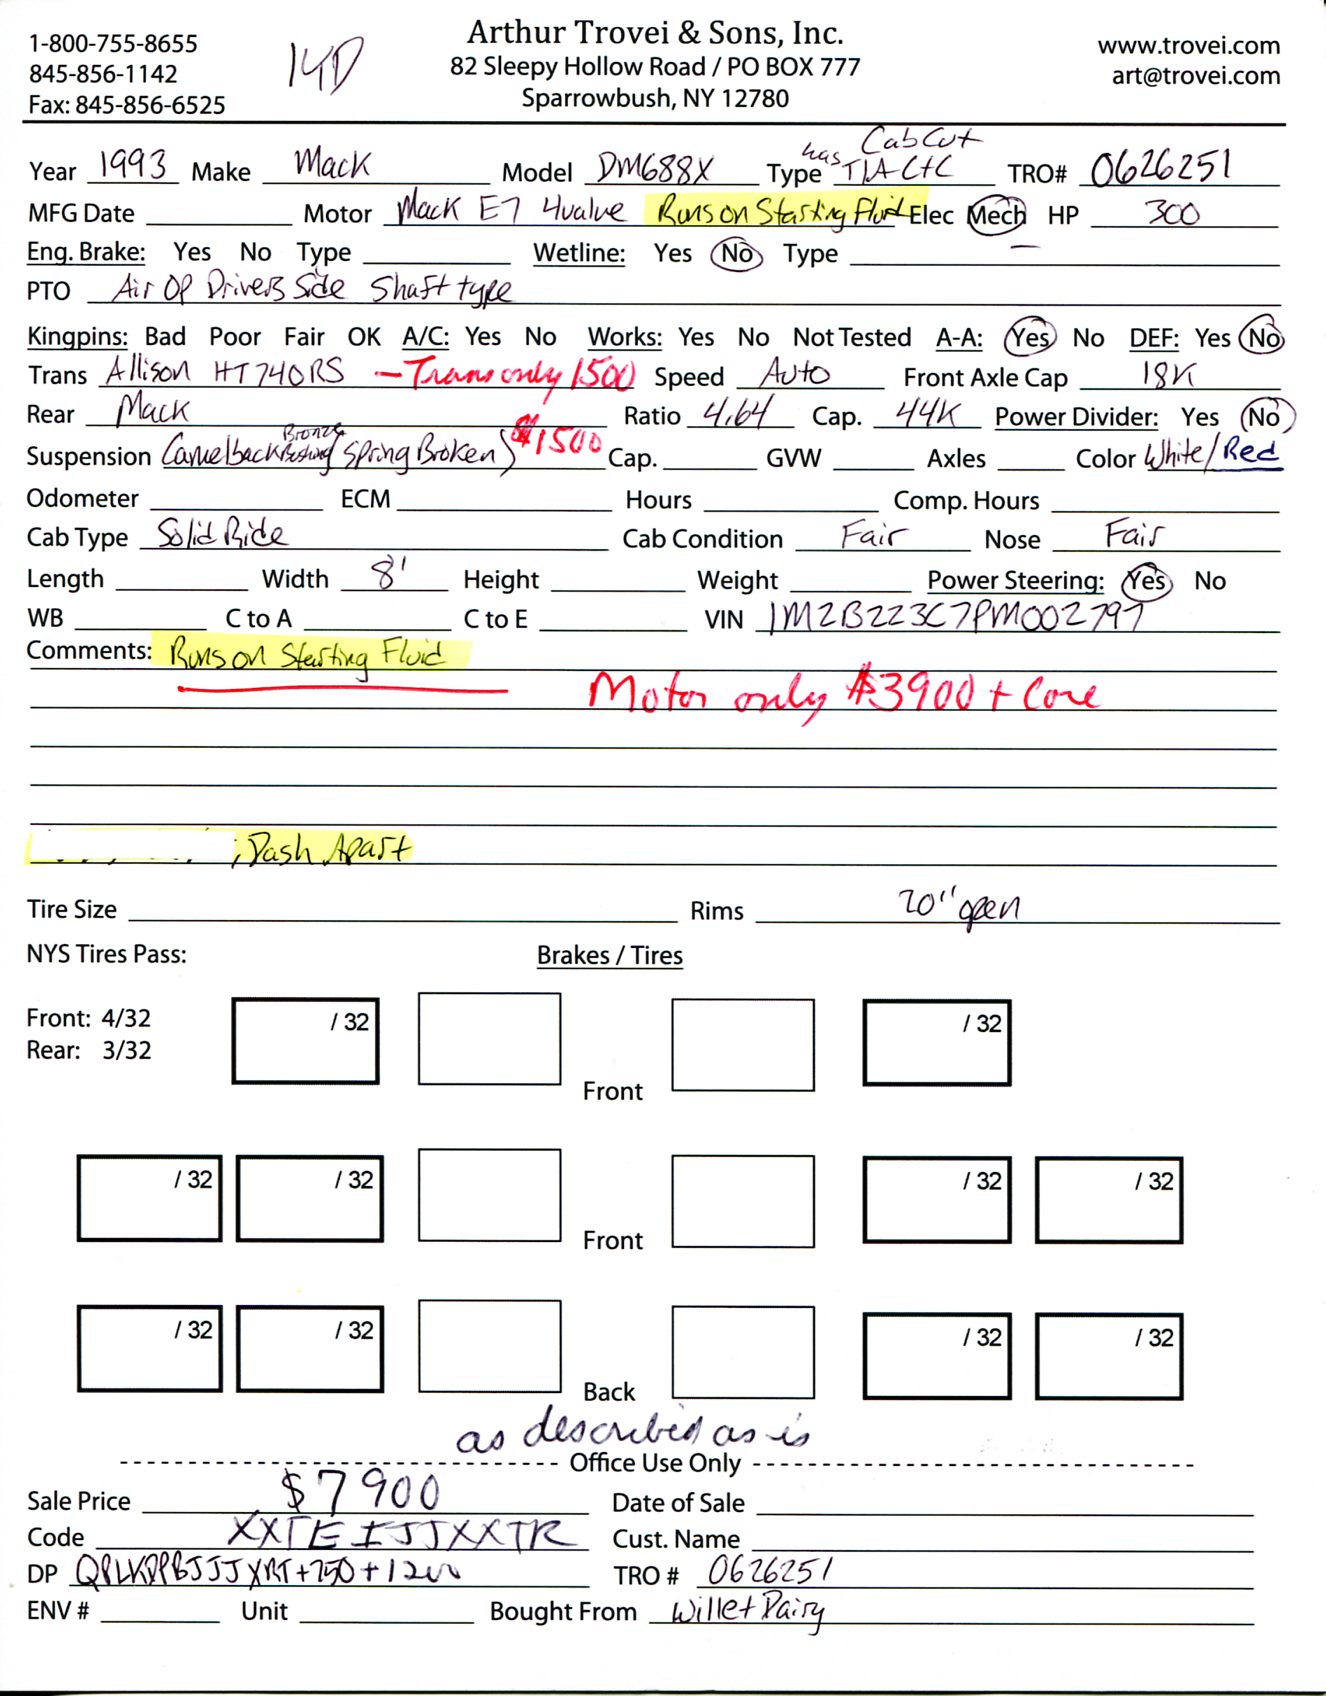 1-800-755-8655
845-856-1142
Fax: 845-856-6525
14D
Arthur Trovei & Sons, Inc.
82 Sleepy Hollow Road / PO BOX 777
Sparrowbush, NY 12780
www.trovei.com
art@trovei.com
has Cab Cut
Year 1993 Make Mack Model DM688X Type T/A C+C TRO# 0626251
MFG Date Motor Mack E7 4valve Runs on Starting Fluid Elec Mech HP 300
Eng. Brake: Yes No Type Wetline: Yes No Type
PTO Air OP Drivers Side Shaft type
Kingpins: Bad Poor Fair OK A/C: Yes No Works: Yes No Not Tested A-A: Yes No DEF: Yes No
Trans Allison HT740RS - Trans only 1500 Speed Auto Front Axle Cap 18K
Rear Mack Ratio 4.64 Cap. 44K Power Divider: Yes No
Suspension Camelback Bronze Bushing (Spring Broken) $1500 Cap. GVW Axles Color White/Red
Odometer ECM Hours Comp. Hours
Cab Type Solid Ride Cab Condition Fair Nose Fair
Length Width 8' Height Weight Power Steering: Yes No
WB C to A C to E VIN 1M2B223C7PM002797
Comments: Runs on Starting Fluid
Motor only $3900 + Core
; Dash Apart
Tire Size Rims 20" open
NYS Tires Pass: Brakes / Tires
Front: 4/32
Rear: 3/32
/ 32 / 32
Front
/ 32 / 32 / 32 / 32
Front
/ 32 / 32 / 32 / 32
Back
as described as is
Office Use Only
Sale Price $7900 Date of Sale
Code XXTEIJJXXTR Cust. Name
DP +750+1200 TRO # 0626251
ENV # Unit Bought From Willet Dairy